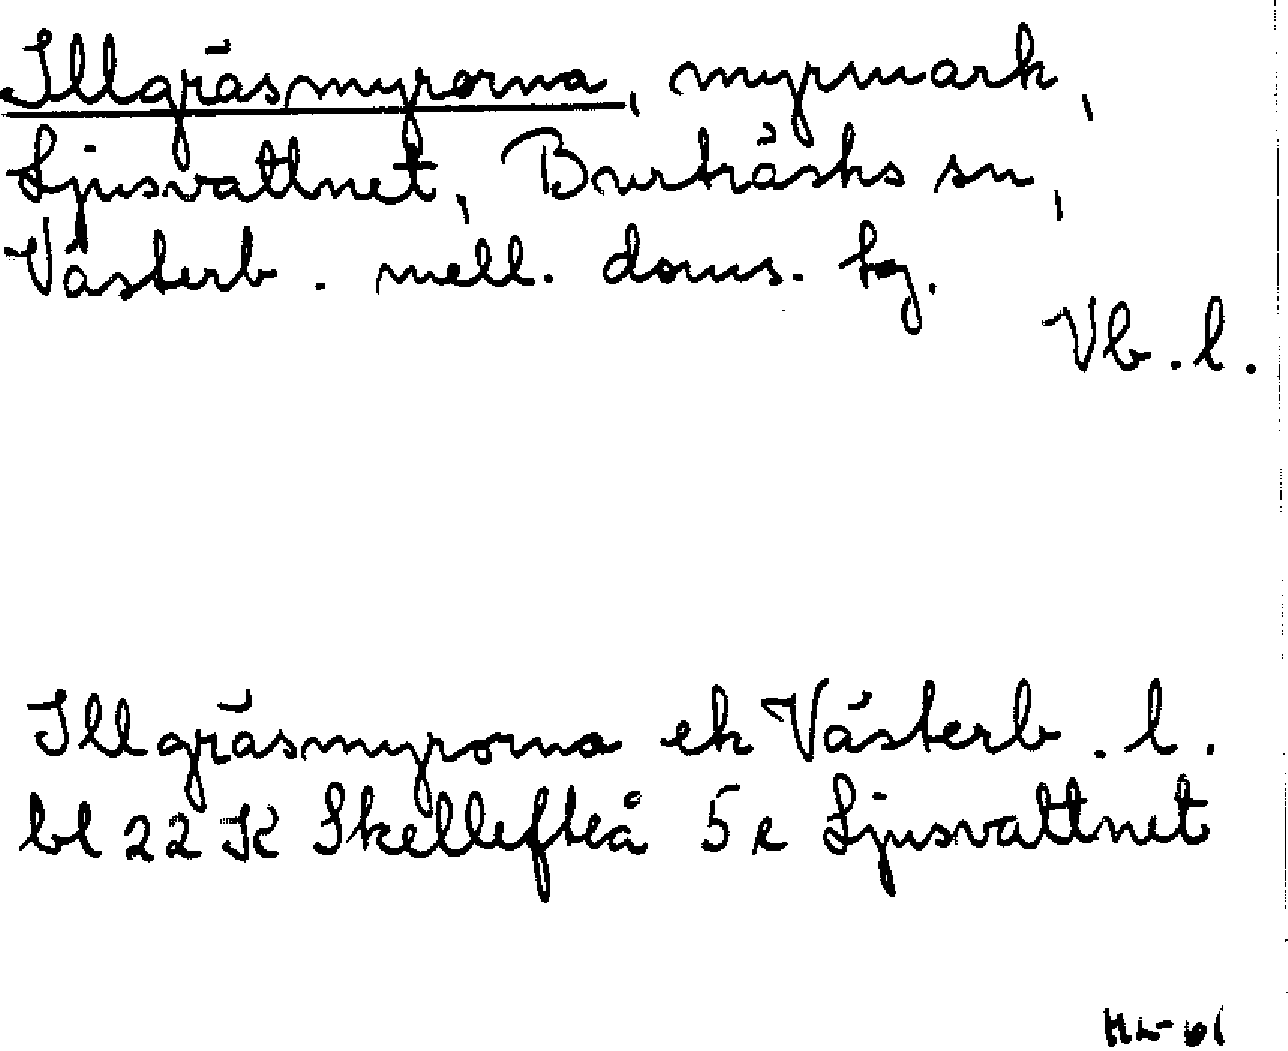 Illgräsmyrorna, myrmark,
Ljusvattnet, Burträsks sn,
Västerb. mell. doms. tg.
Vb. l.
Illgräsmyrorna ek Västerb. l.
bl 22 K Skellefteå 5 e Ljusvattnet